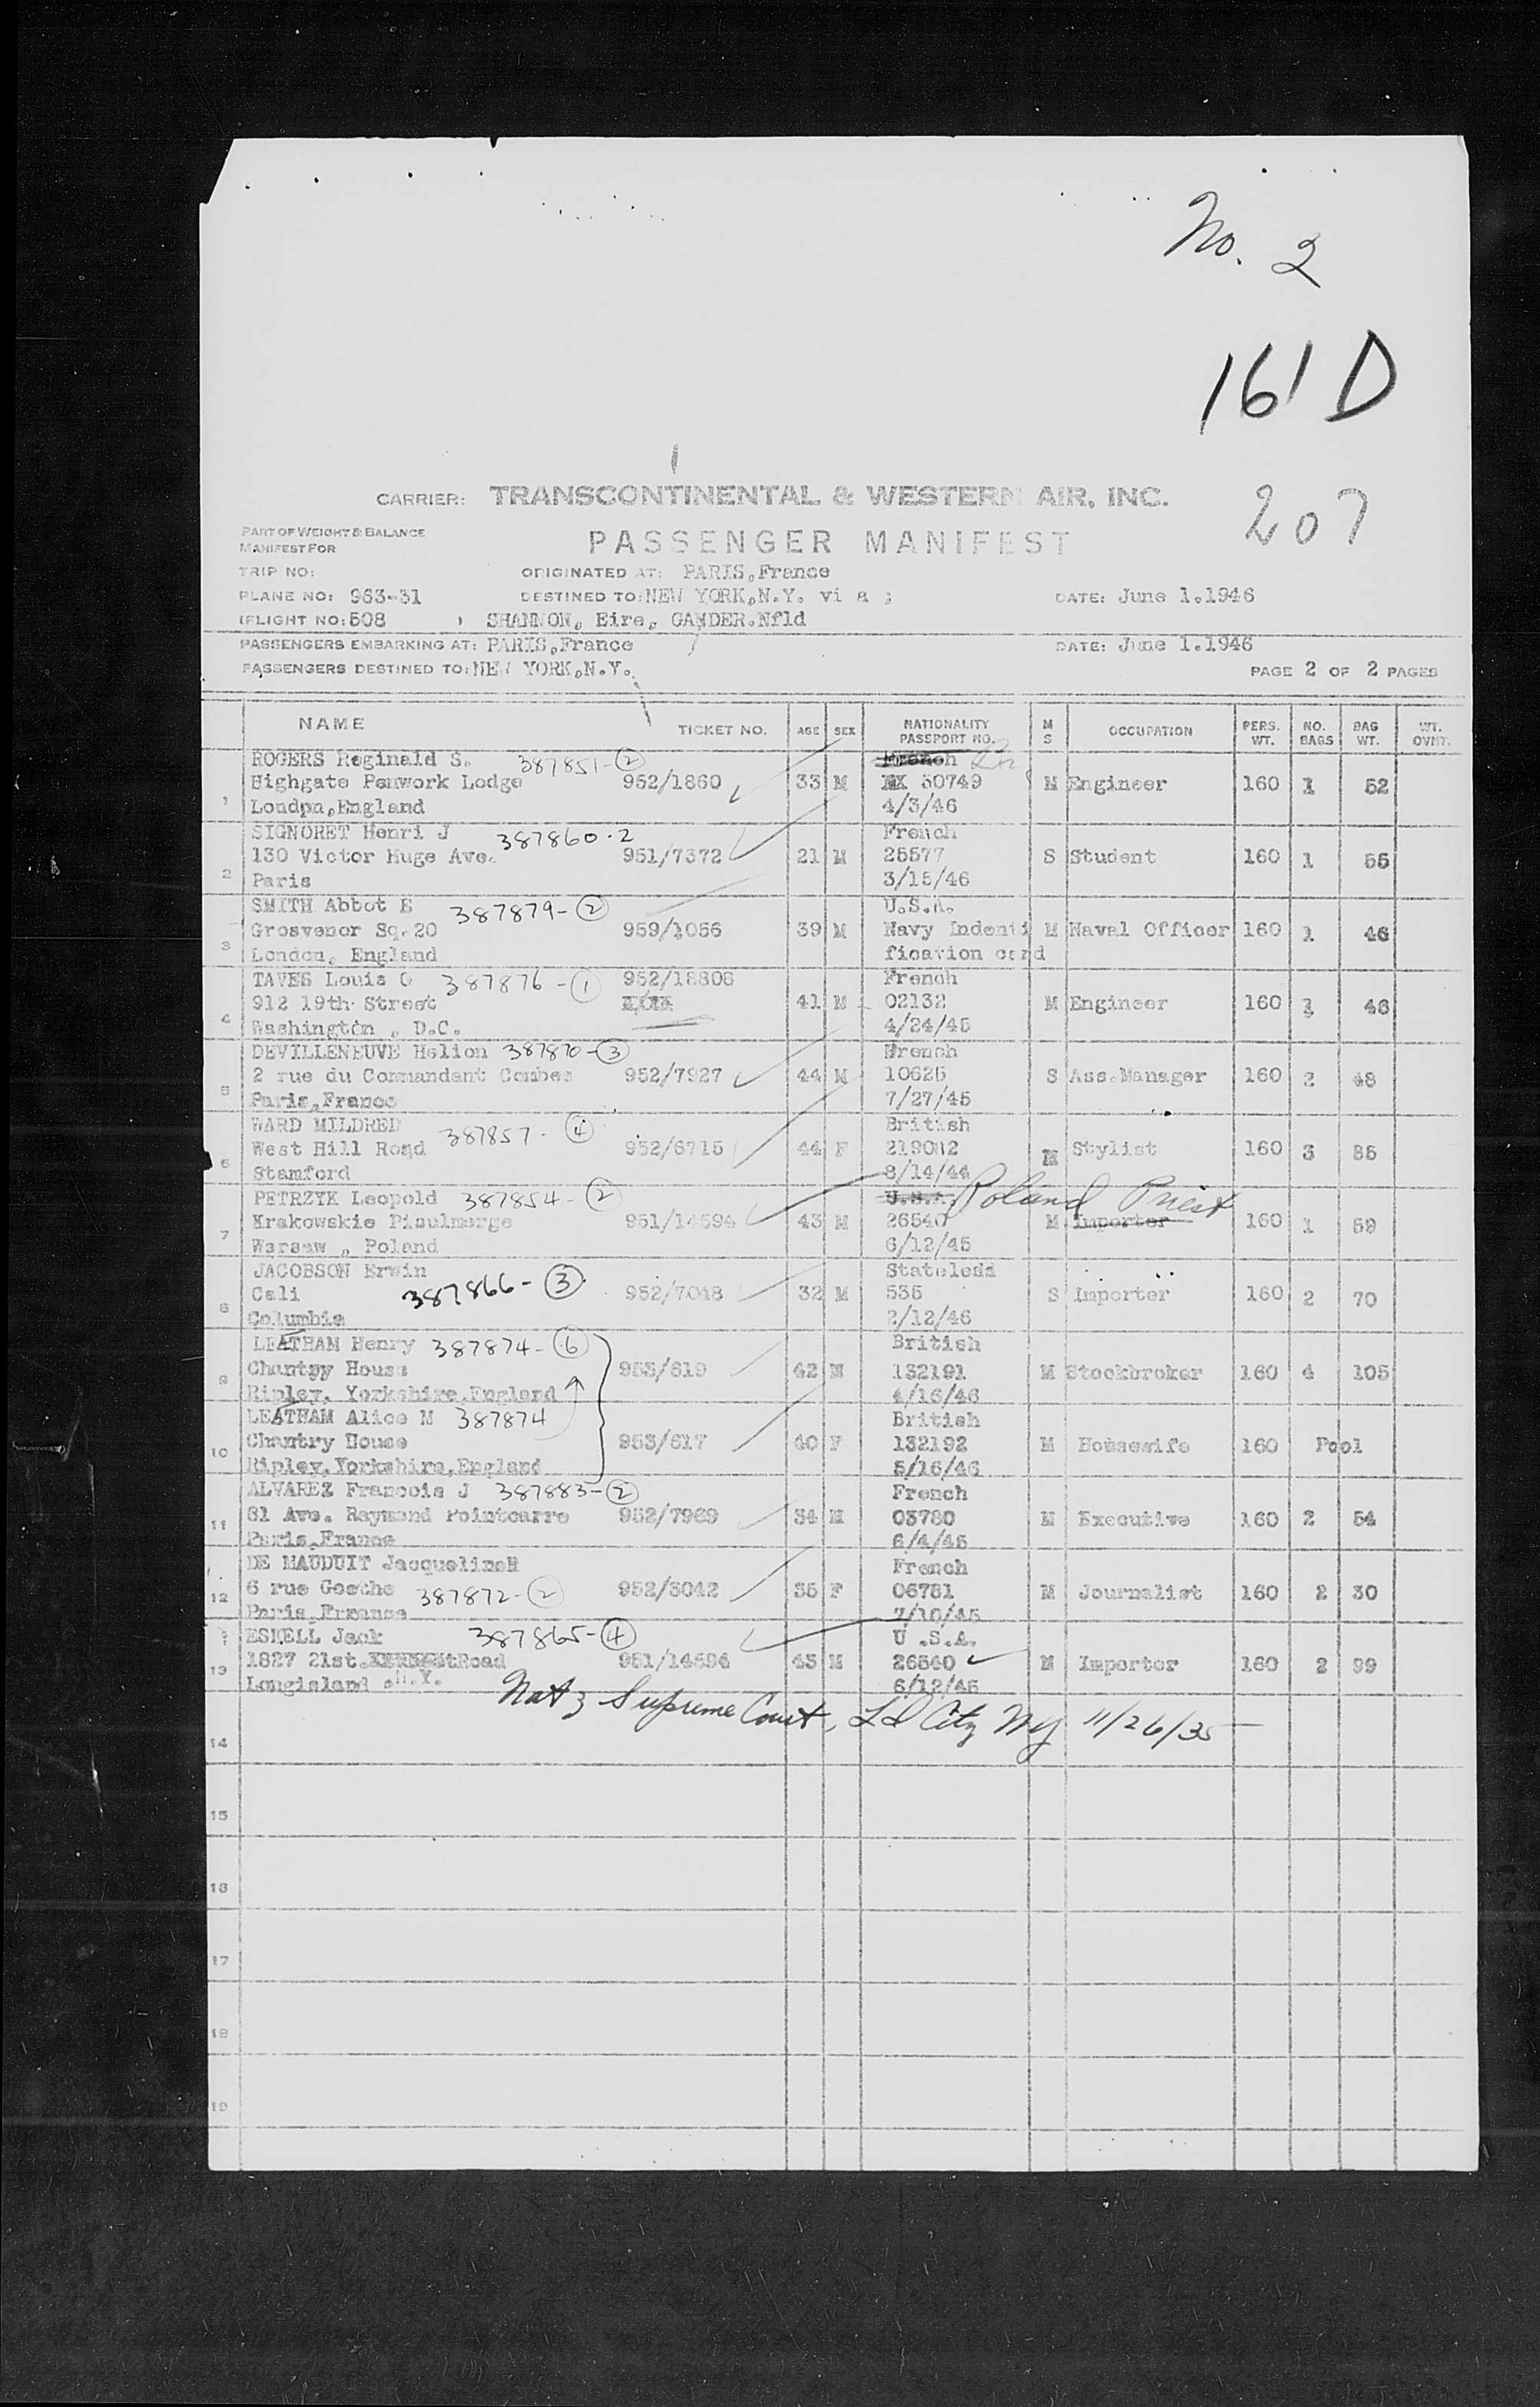 No. 2
161 D
207
CARRIER: TRANSCONTINENTAL & WESTERN AIR, INC.
PART OF WEIGHT & BALANCE
MANIFEST FOR
PASSENGER MANIFEST
TRIP NO: ORIGINATED AT: PARIS,France
PLANE NO: 963-31 DESTINED TO: NEW YORK,N.Y. vi a ; DATE: June 1.1946
FLIGHT NO: 508 SHANNON, Eire, GANDER.Nfld
PASSENGERS EMBARKING AT: PARIS,France DATE: June 1.1946
PASSENGERS DESTINED TO: NEW YORK,N.Y. PAGE 2 OF 2 PAGES
NAME TICKET NO. AGE SEX NATIONALITY PASSPORT NO. M S OCCUPATION PERS. WT. NO. BAGS BAG WT. WT. OVNT.
ROGERS Reginald S. 387851-2 French
Highgate Penwork Lodge 952/1860 33 M 50749 M Engineer 160 1 52
1 Londpn,England 4/3/46
SIGNORET Henri J 387860-2 French
130 Victor Huge Ave. 951/7372 21 M 25577 S Student 160 1 55
2 Paris 3/15/46
SMITH Abbot E 387879-2 U.S.A.
Grosvenor Sq.20 959/1056 39 M Navy Indenti M Naval Officer 160 1 46
3 London, England fication card
TAVES Louis G 387876-1 952/18808 French
912 19th Street 41 M 02132 M Engineer 160 1 46
4 Washington , D.C. 4/24/45
DEVILLENEUVE Helion 387870-3 French
2 rue du Commandant Combes 952/7927 44 M 10625 S Ass.Manager 160 2 48
5 Paris,France 7/27/45
WARD MILDRED 387857-4 British
West Hill Road 952/6715 44 F 219082 M Stylist 160 3 86
6 Stamford 8/14/44
PETRZYK Leopold 387854-2 U.S.A. Poland Priest
Krakowskie Pisulmerge 951/14694 43 M 26540 M Importer 160 1 59
7 Warsaw , Poland 6/12/45
JACOBSON Erwin Stateless
Cali 387866-3 952/7048 32 M 535 S Importer 160 2 70
8 Columbia 2/12/46
LEATHAM Henry 387874-6 British
9 Chantry House 953/619 42 M 132191 M Stockbroker 160 4 105
Ripley, Yorkshire,England 4/16/46
LEATHAM Alice M 387874 British
10 Chantry House 953/617 40 F 132192 M Housewife 160 Pool
Ripley,Yorkshire,England 5/16/46
ALVAREZ Francois J 387883-2 French
11 81 Ave. Raymond Pointcarre 952/7969 34 M 03780 M Executive 160 2 54
Paris,France 6/4/45
DE MAUDUIT JacquelineH French
12 6 rue Goethe 387872-2 952/3042 35 F 06781 M Journalist 160 2 30
Paris,Frxance 7/10/45
ESKELL Jack 387865-4 U .S.A.
13 1827 21st. Road 951/14694 45 M 26540 M Importer 160 2 99
Longisland .N.Y. 6/12/45
Natz Supreme Court, L I City NY 11/26/35
14
15
16
17
18
19